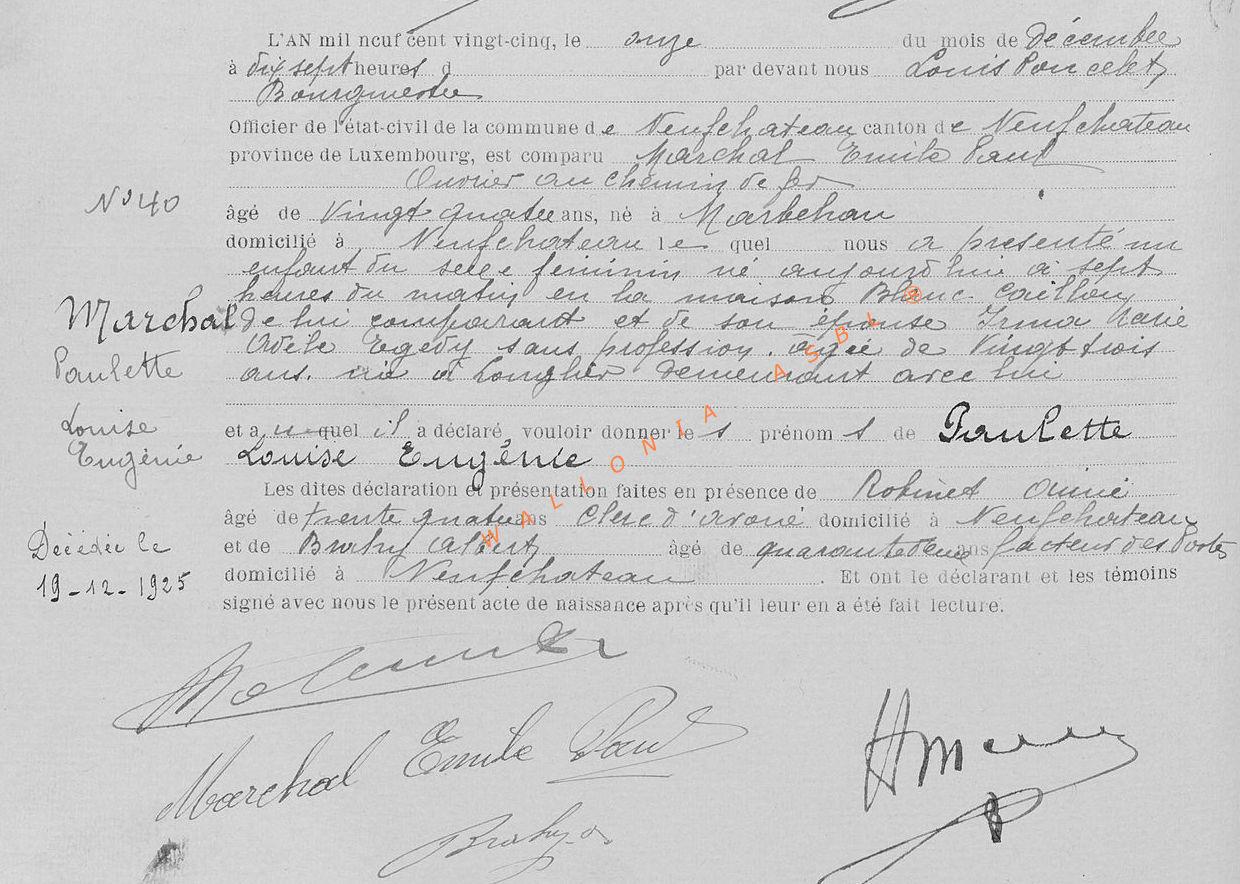 L'AN mil neuf cent vingt-cinq, le onze du mois de décembre
à dix sept heures d par devant nous Louis Poncelet
Bourgmestre
Officier de l'état-civil de la commune de Neufchateau canton de Neufchateau
province de Luxembourg, est comparu Marchal Emile Paul
Ouvrier au chemin de fer
N° 40
âgé de vingt quatre ans, né à Marbehan
domicilié à Neufchateau le quel nous a présenté un
enfant du sexe féminin né aujourd'hui à sept
heures du matin en la maison Blanc Caillou
Marchal
de lui comparant et de son épouse Irma Marie
Adèle sans profession. âgée de vingt trois
Paulette
ans. née à Longlier demeurant avec lui
Louise
et auquel il a déclaré vouloir donner les prénoms de Paulette
Eugénie
Louise Eugénie
Les dites déclaration et présentation faites en présence de Robinet Aimé
âgé de trente quatre ans Clerc d'avoué domicilié à Neufchateau
Décédée le
et de Albert âgé de quarante deux ans facteur des Postes
19-12-1925
domicilié à Neufchateau. Et ont le déclarant et les témoins
signé avec nous le présent acte de naissance après qu'il leur en a été fait lecture.
WALLONIA ASBL ®
Marchal Emile Paul